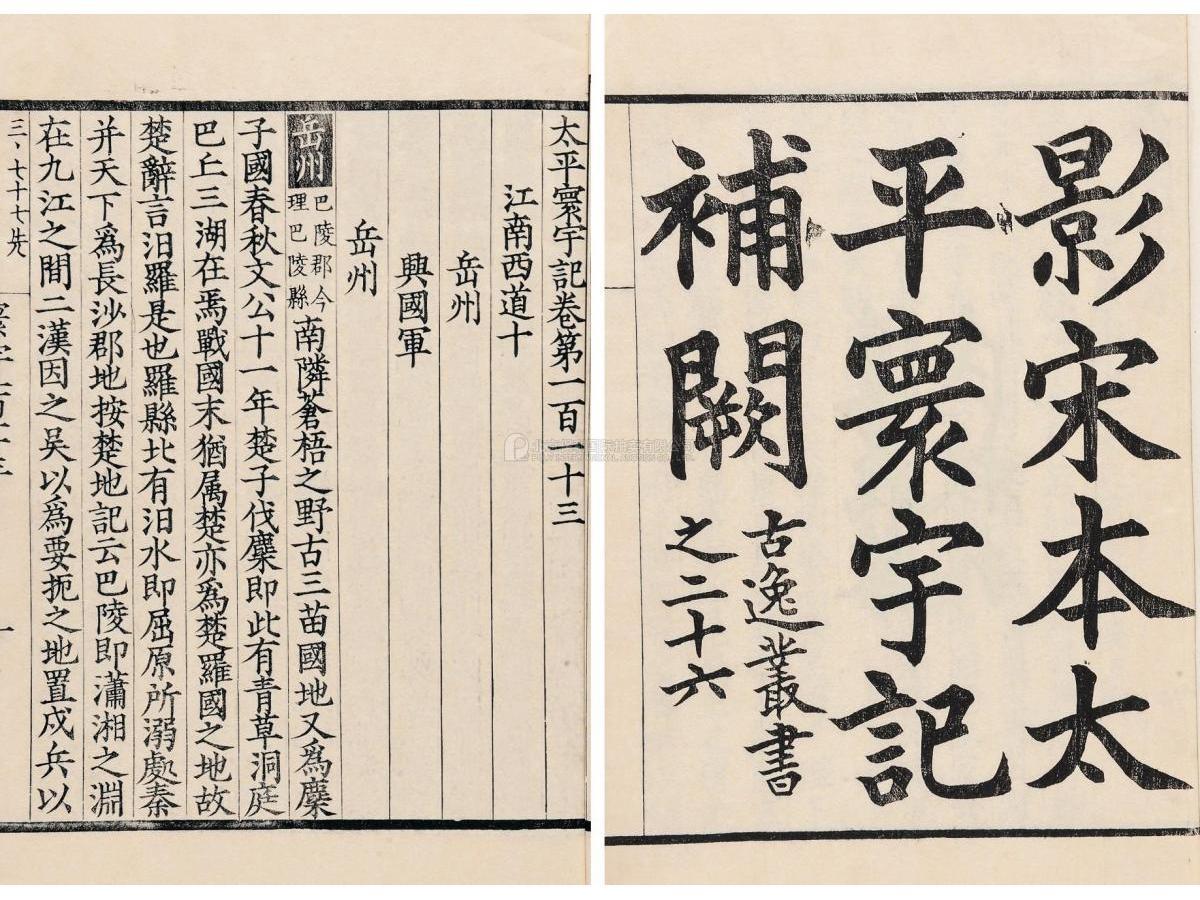 影宋本太
平寰宇記
補闕
古逸叢書
之二十六
太平寰宇記卷第一百一十三
江南西道十
岳州
興國軍
岳州
岳州 巴陵郡今理巴陵縣 南隣蒼梧之野古三苗國地又爲麋
子國春秋文公十一年楚子伐麋即此有青草洞庭
巴丘三湖在焉戰國末猶属楚亦爲楚羅國之地故
楚辭言汨羅是也羅縣北有汨水即屈原所溺處秦
并天下爲長沙郡地按楚地記云巴陵即瀟湘之淵
在九江之間二漢因之吴以爲要扼之地置戍兵以
三、七十七先
一